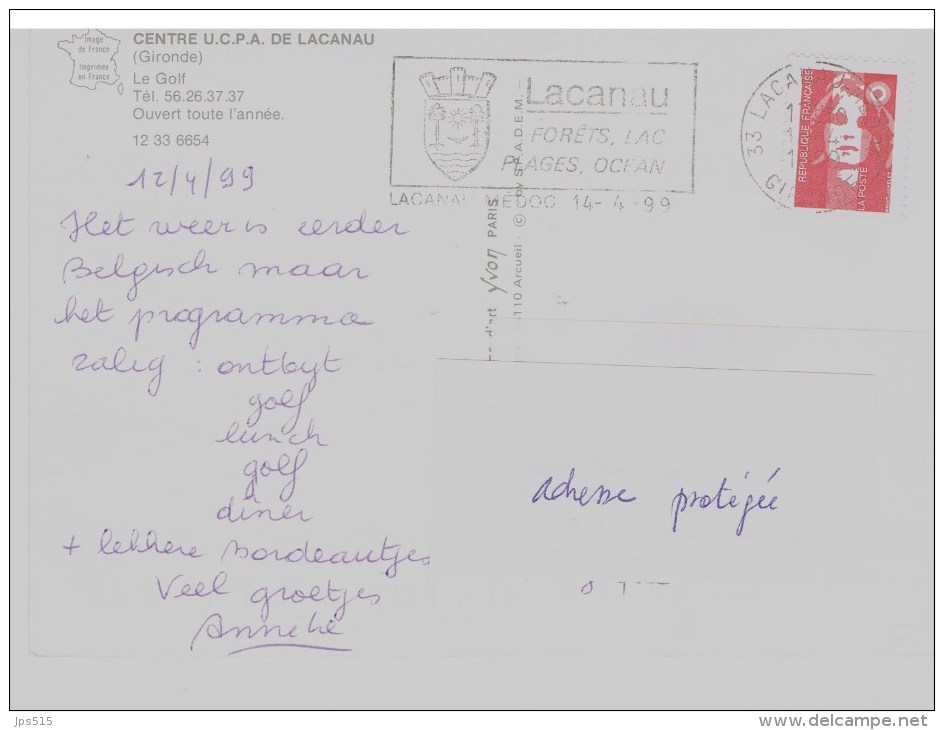 Image
de France
Imprimée
en France
CENTRE U.C.P.A. DE LACANAU
(Gironde)
Le Golf
Tél. 56.26.37.37
Ouvert toute l'année.
12 33 6654
Lacanau
FORÊTS, LAC
PLAGES, OCEAN
LACANAU MEDOC 14- 4 -99
33 LACANAU
REPUBLIQUE FRANÇAISE
LA POSTE
12/4/99
Het weer is eerder
Belgisch maar
het programma
zalig : ontbyt
golf
lunch
golf
diner
+ lekkere Bordeautjes
Veel groetjes
Anneke
d'art yvon PARIS
110 Arcueil - ©
adresse protégée
jps515
delcampe.net